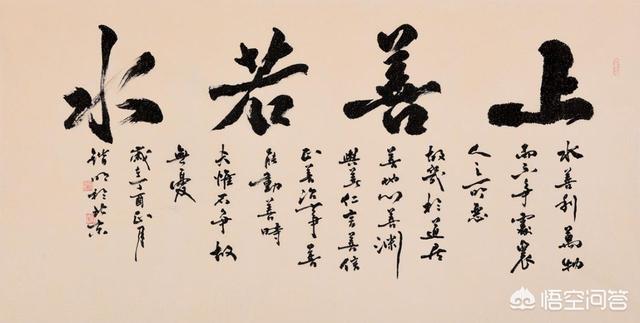 上善若水
水善利萬物
而不争處衆
人之所惡
故幾於道居
善地心善渊
與善仁言善信
正善治事善
能動善時
夫惟不争故
無憂
歲丁酉正月
於北京
悟空问答